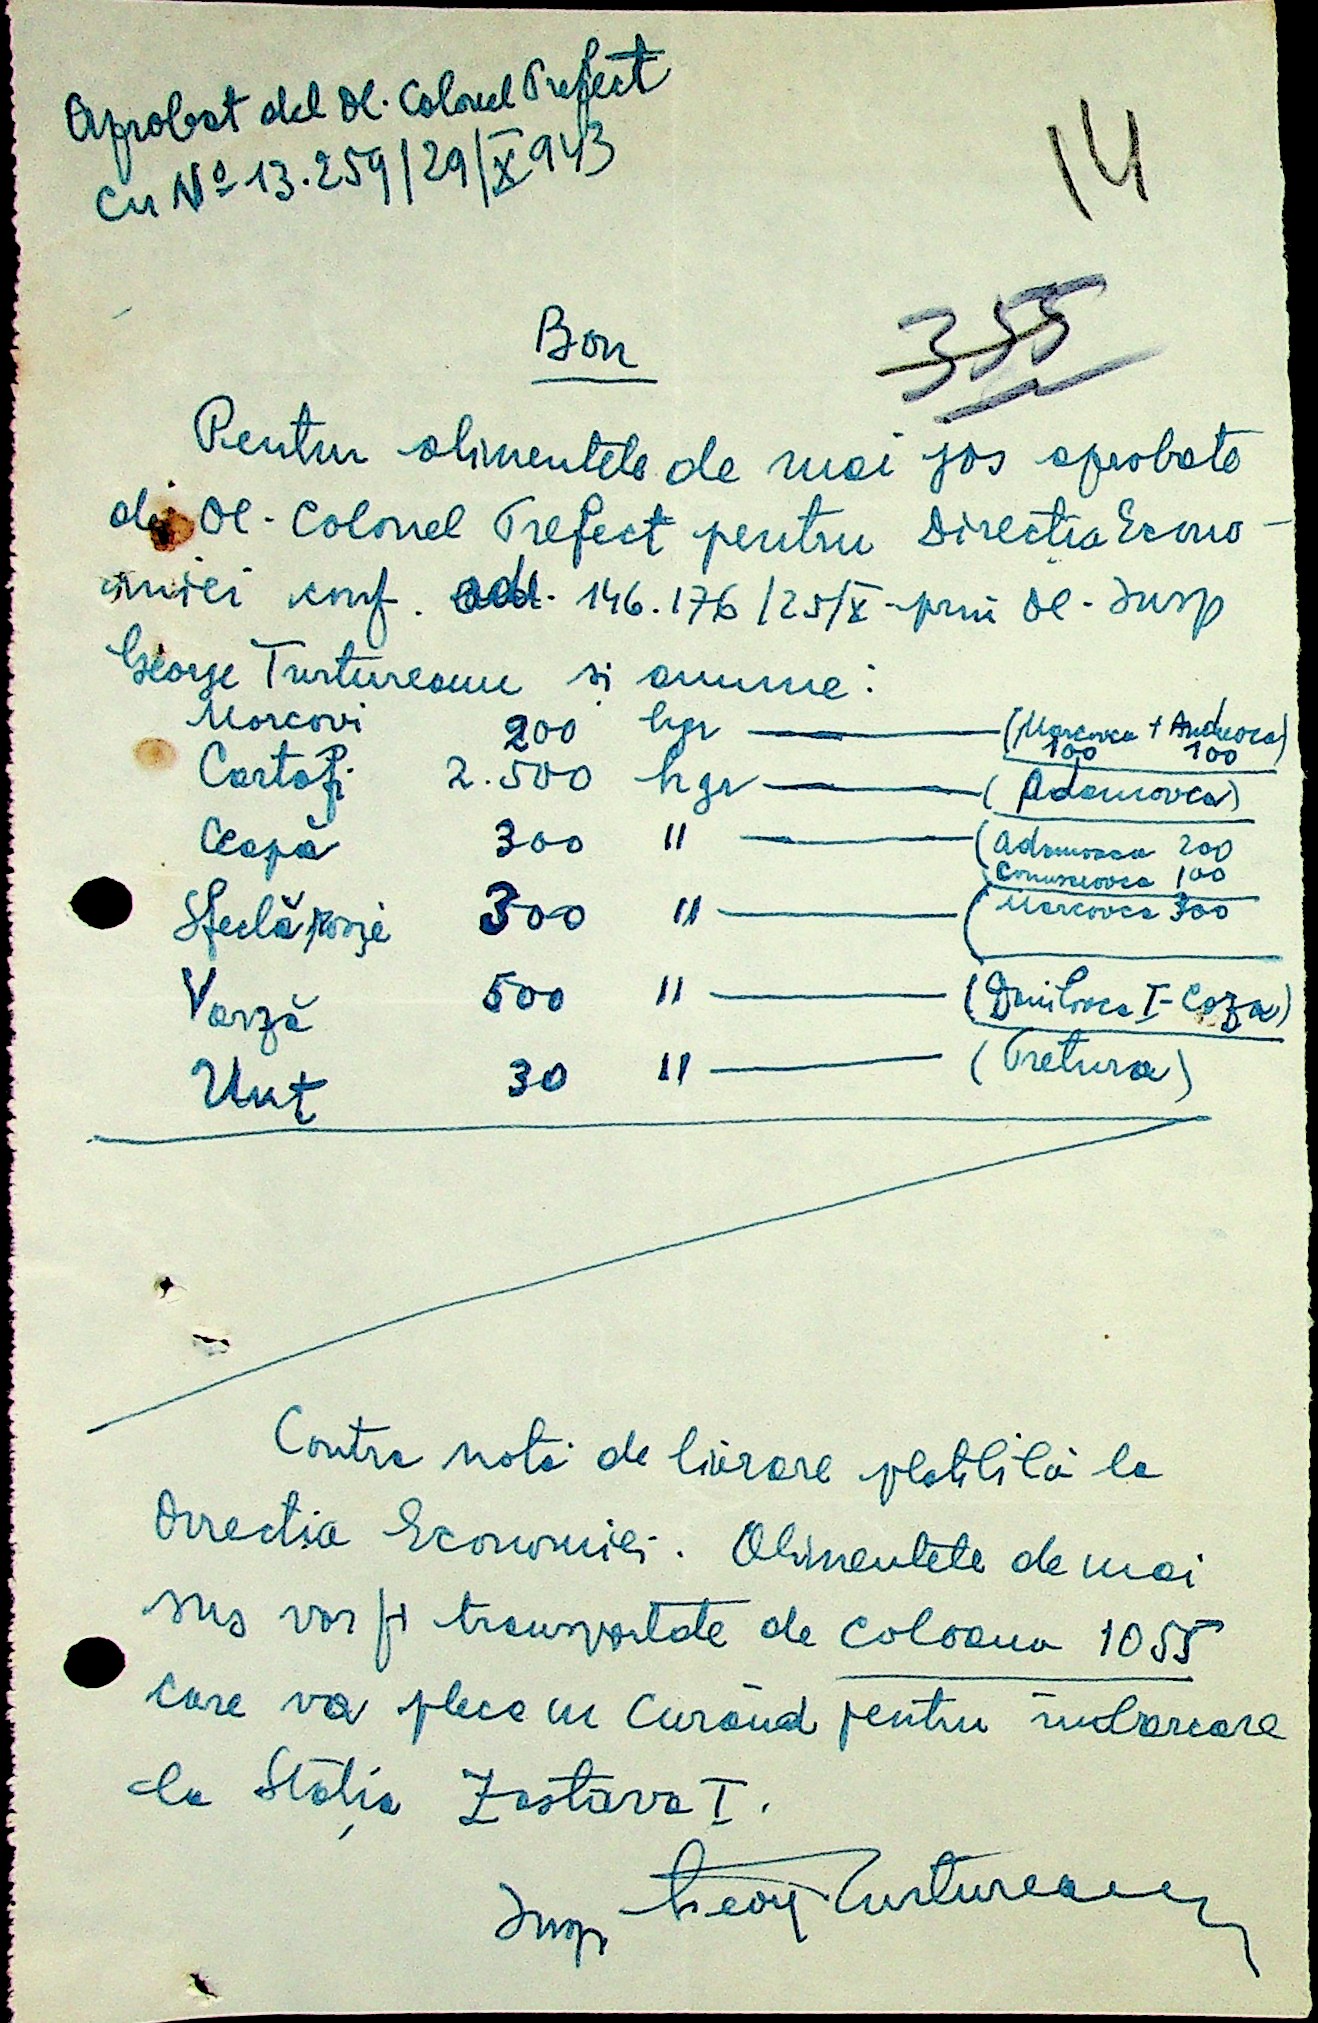 Aprobat del Dl. Colonel Prefect
Cu No 13.259/29/X 943
14
355
Bon
Pentru alimentele de mai jos aprobate
de Dl. Colonel Prefect pentru Directia Econo-
miei conf. ad. 146.176/25/X prin Dl. Insp
George Turtureanu si anume:
Morcovi 200 kgr (Marcovca + 100 100)
Cartofi 2.500 kgr (Adamovca)
Ceapă 300 " (Adamovca 200
100
Sfeclă roșie 300 " (Marcovca 300
Varză 500 " (Danilovca I-Coza)
Unt 30 " (Pretura)
Contra notă de livrare platibilă la
Directia Economiei. Alimentele de mai
sus vor fi transportate de coloana 1055
care va pleca in curând pentru îmbarcare
la Stația Zastava I.
Insp George Turtureanu